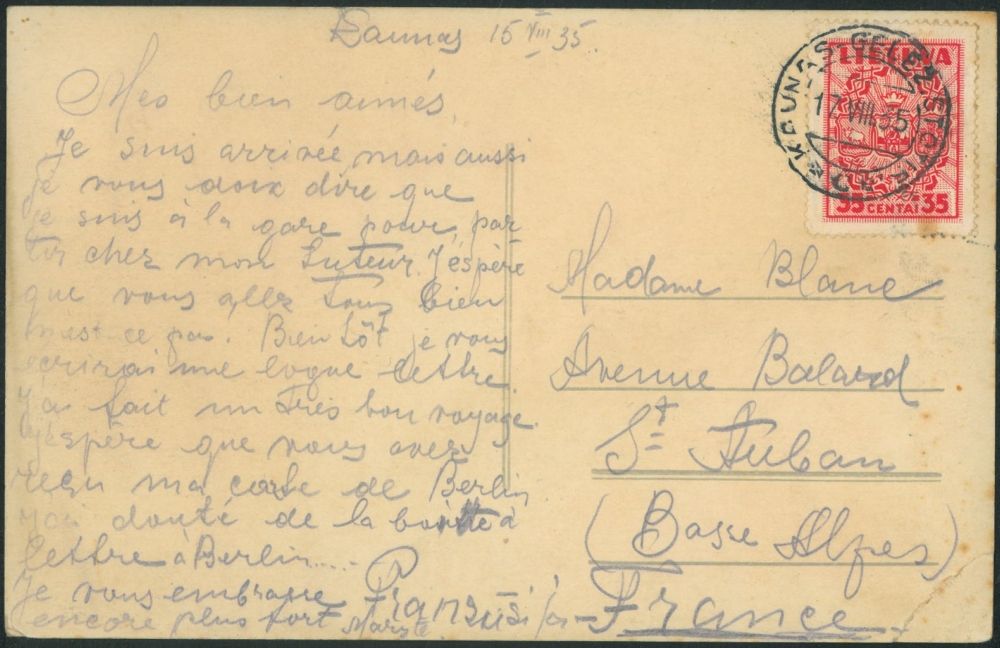 Kaunas 15 VIII 35.
Mes bien aimés,
Je suis arrivée mais aussi
je vous doix dire que
je suis à la gare pour par
tir chez mon tuteur. J'éspère
que vous allez tous bien
n'est-ce pas. Bientôt je vous
ecrirai une logue lettre.
J'ai fait un très bon voyage.
J'éspère que vous avez
reçu ma carte de Berlin
j'ai douté de la boitte à
lettre à Berlin.....
Je vous embrasse
encore plus fort
LIETUVA
KAUNAS-GELEŽ. STOTIS
17 VIII 35
35 CENTAI 35
Madame Blanc
Avenue Balard
St Auban
(Basse Alpes)
France